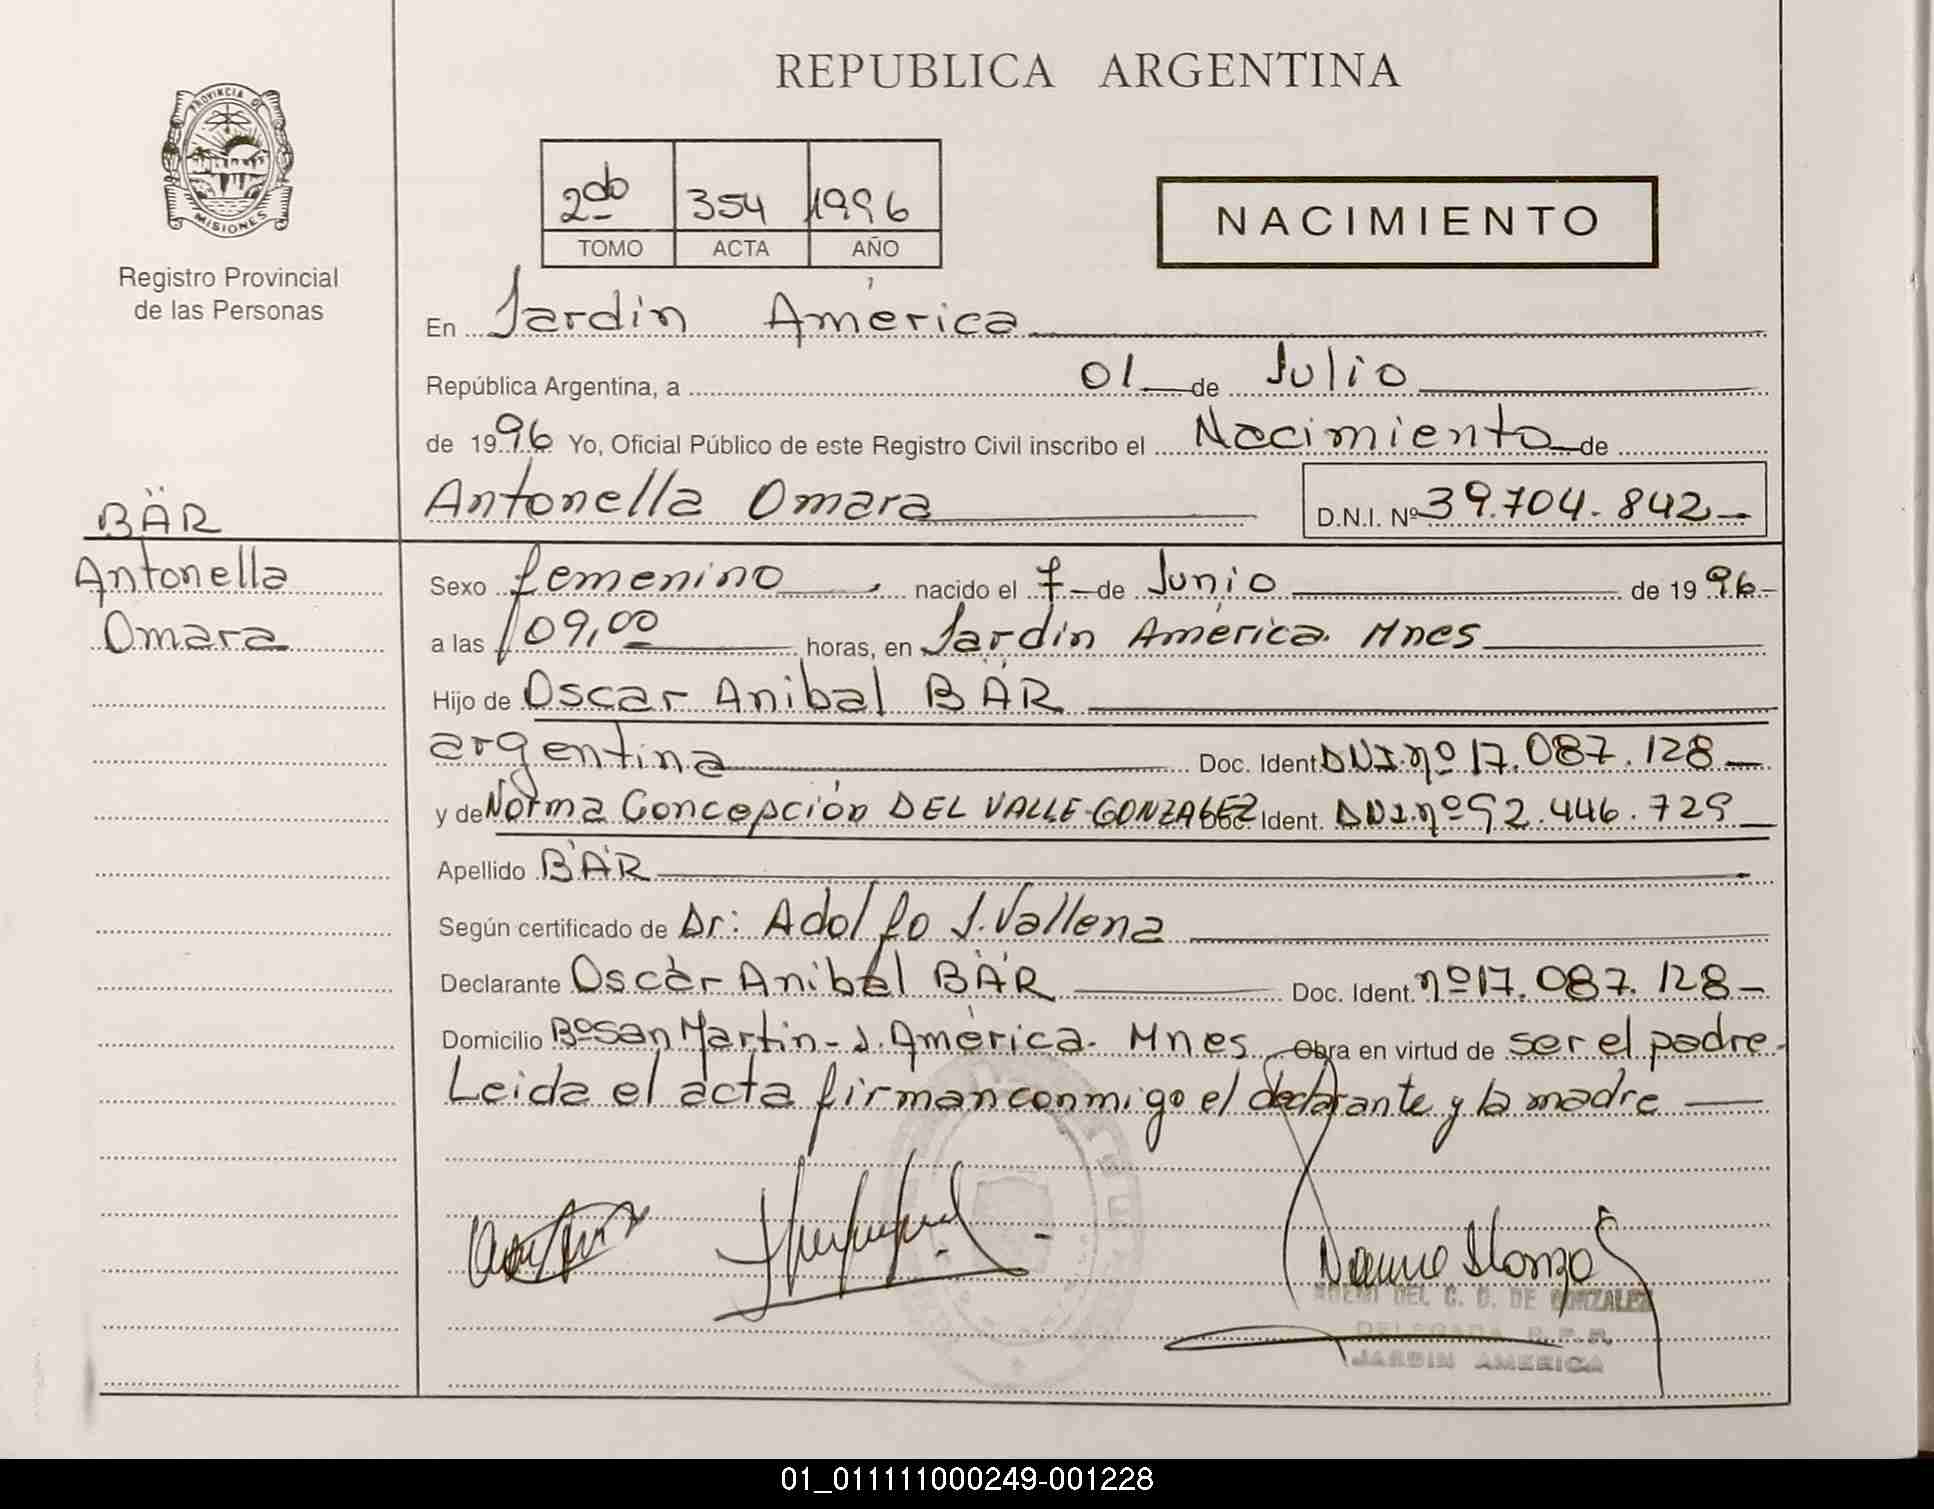 REPUBLICA ARGENTINA
PROVINCIA DE
MISIONES
Registro Provincial
de las Personas
2do 354 1996
TOMO ACTA AÑO
NACIMIENTO
En Jardín América
República Argentina, a 01 de Julio
de 1996 Yo, Oficial Público de este Registro Civil inscribo el Nacimiento de
Antonella Omara D.N.I. Nº 39.704.842
BÄR
Antonella
Omara
Sexo femenino, nacido el 7 de Junio de 1996
a las 09,00 horas, en Jardín América. Mnes
Hijo de Oscar Anibal BÄR
argentina Doc. Ident. DNI. nº 17.087.128
y de Norma Concepción DEL VALLE GONZALEZ Doc. Ident. DNI. nº 92.446.729
Apellido BÄR
Según certificado de Dr: Adolfo J. Vallena
Declarante Oscar Anibal BÄR Doc. Ident. nº 17.087.128
Domicilio Bº San Martín - J. América. Mnes Obra en virtud de ser el padre.
Leida el acta firman conmigo el declarante y la madre
DEL C. D. DE GONZALEZ
DELEGADA R.P.P.
JARDIN AMERICA
01_011111000249-001228